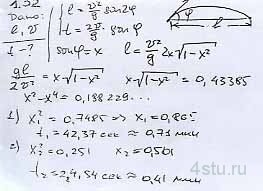 1.32
Дано:
l, v
t - ?
l = v²/g sin2φ
t = 2v/g · sinφ
sinφ = x
l = v²/g 2x√1-x²
φ
l
gl/2v² = x√1-x²
x√1-x² = 0,43385
x² - x⁴ = 0,188229...
1) x₁² = 0,7485 => x₁ = 0,865
t₁ = 42,37 сек ≈ 0,71 мин
2) x₂² = 0,251 x₂ = 0,501
t₂ = 24,54 сек ≈ 0,41 мин
4stu.ru